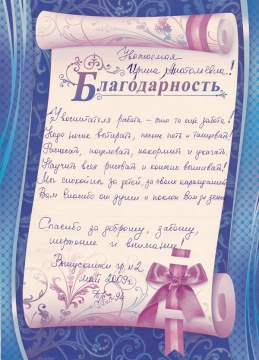 Уважаемая
Ирина Анатольевна!
Благодарность
У воспитателя работа – это то ещё забота!
Надо носик вытирать, песни петь и танцевать!
Расчесать, поцеловать, накормить и укачать.
Научить всех рисовать и конечно вышивать!
Мы спокойны за детей, за своих карандашей
Вам спасибо от души и поклон Вам до земли
Спасибо за доброту, заботу,
терпение и внимание!
Выпускники гр. №2
май 2009г.